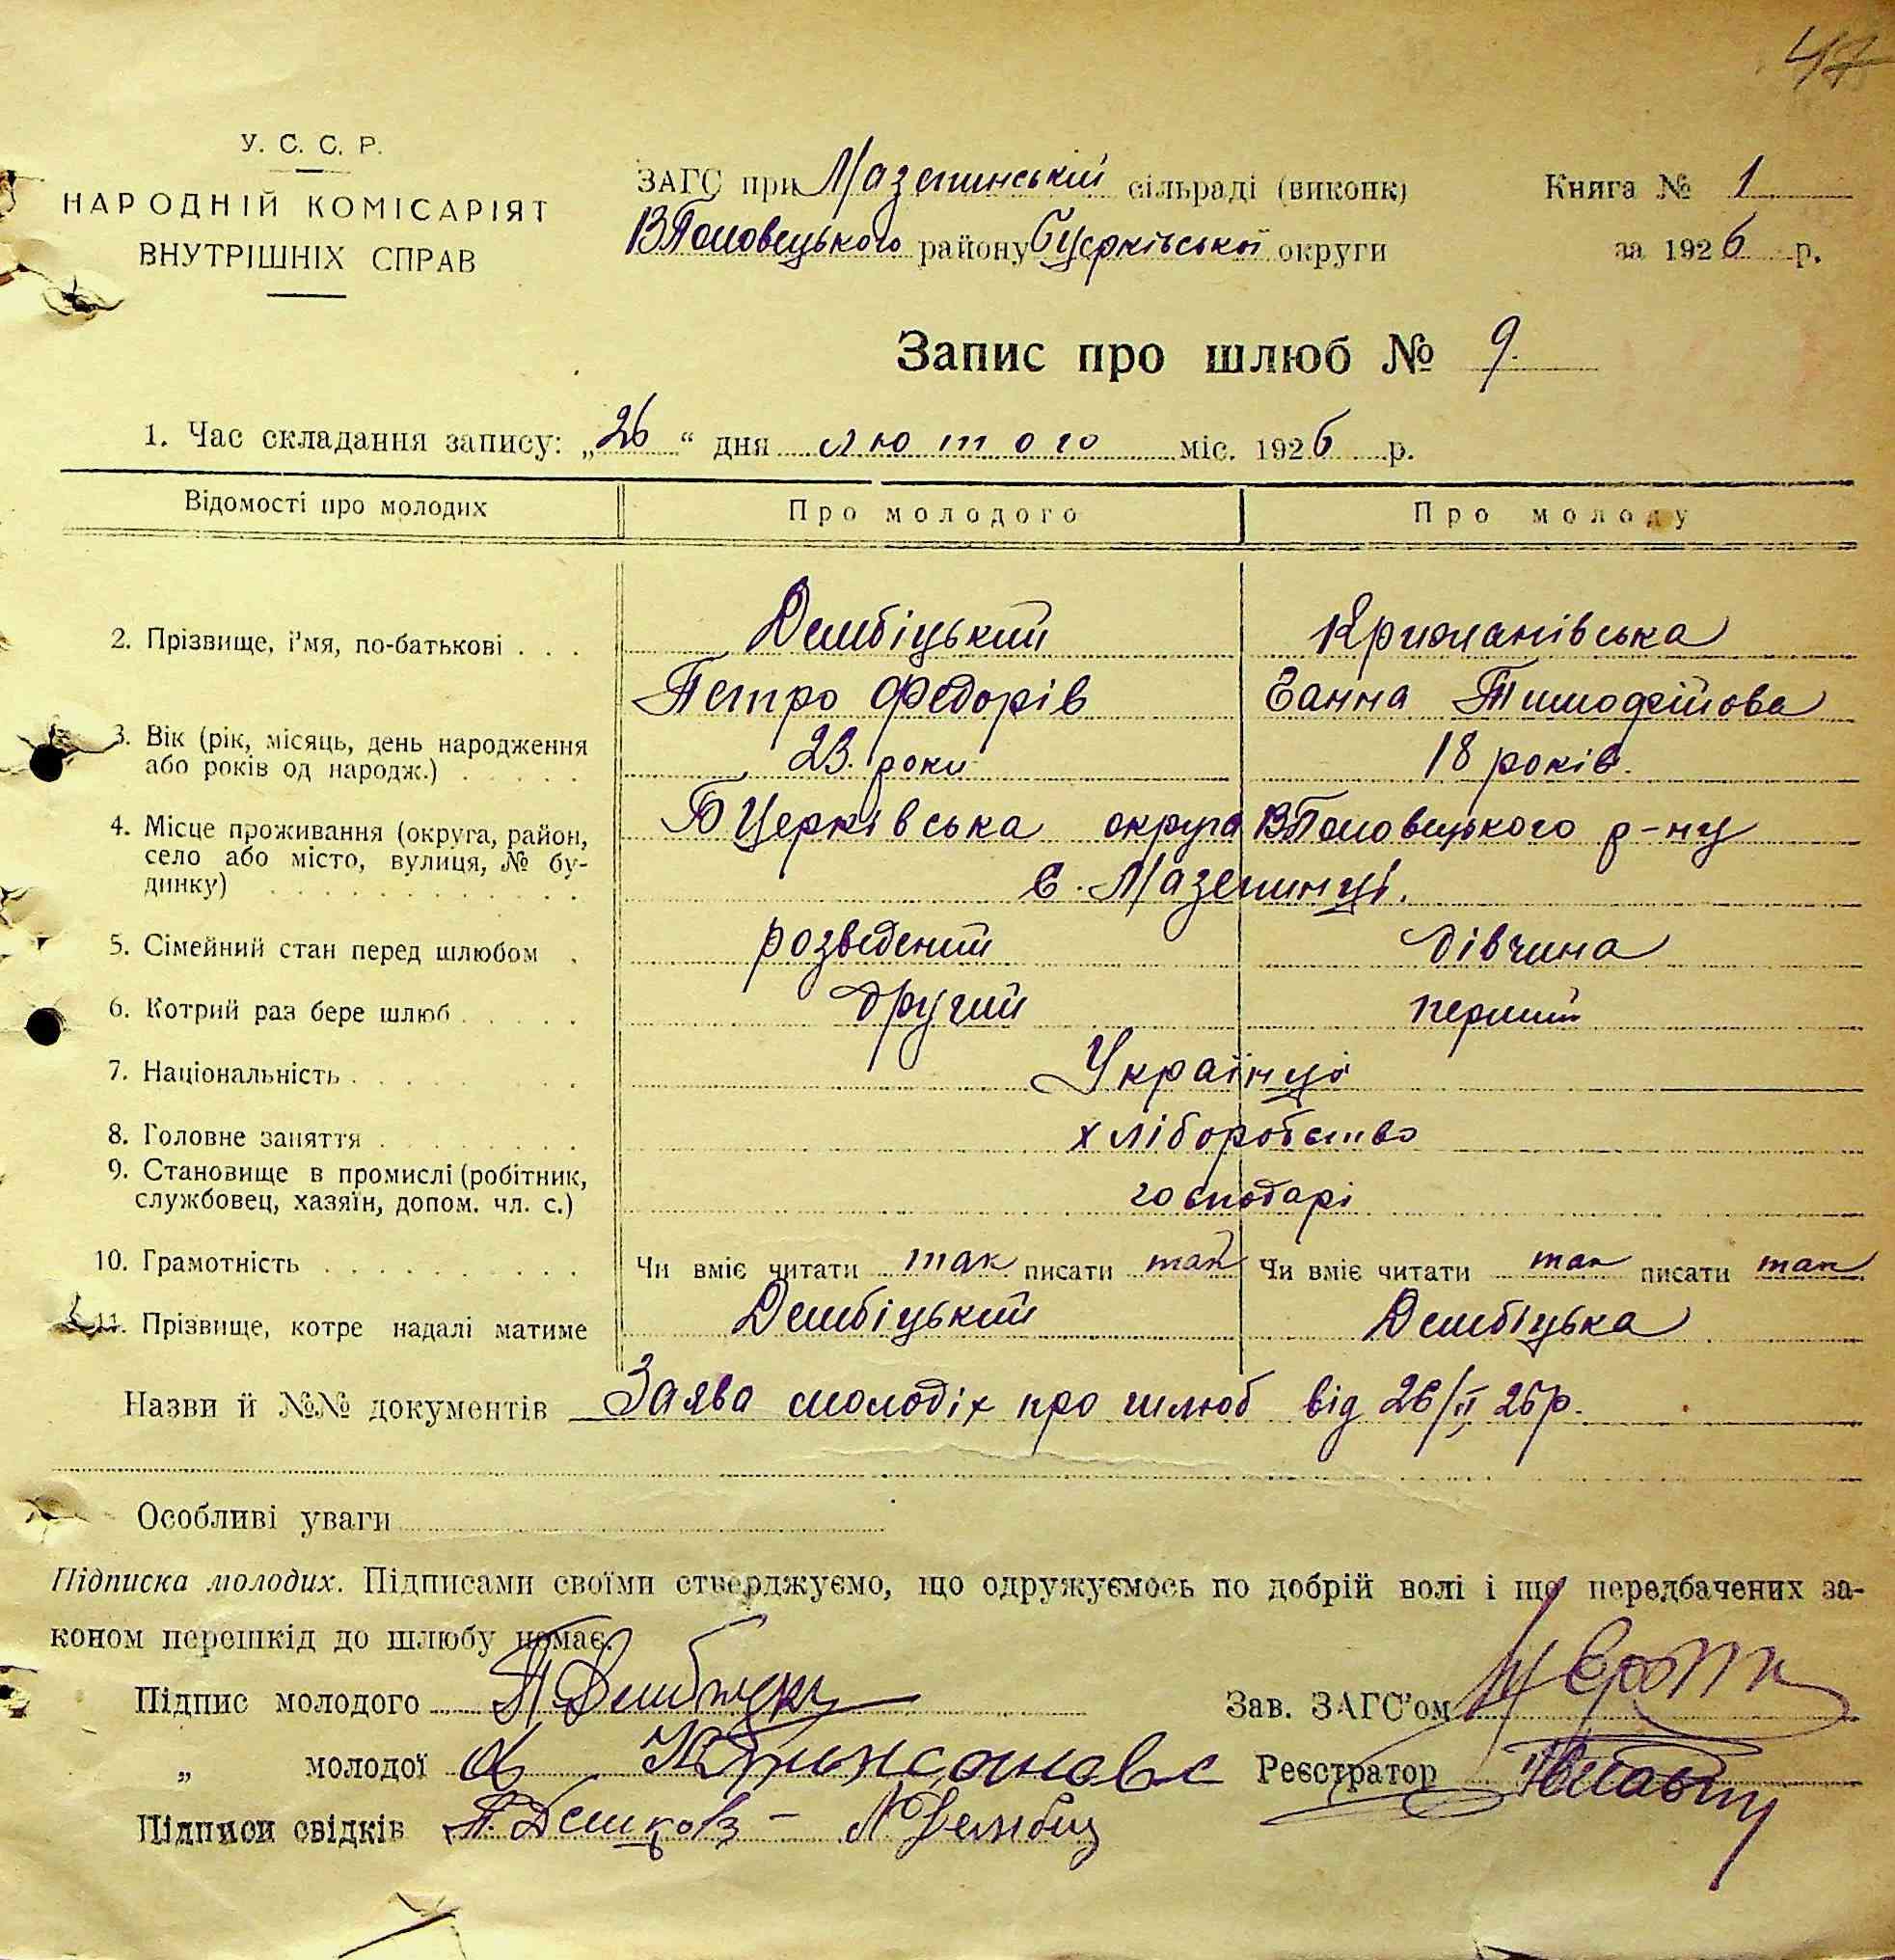 47
У. С. С. Р.
НАРОДНІЙ КОМІСАРІЯТ
ВНУТРІШНІХ СПРАВ
ЗАГС при Мазепинській сільраді (виконк)
ВПоловецького району БЦерківської округи
Книга № 1
за 1926 р.
Запис про шлюб № 9.
1. Час складання запису: „26“ дня лютого міс. 1926 р.
Відомості про молодих Про молодого Про молоду
2. Прізвище, і'мя, по-батькові . . . Дембіцький Крижанівська
Петро Федорів Ганна Тимофійова
3. Вік (рік, місяць, день народження
або років од народж.) . . . . . 23 роки 18 років.
4. Місце проживання (округа, район, БЦерківська округа ВПоловецького р-ну
село або місто, вулиця, № бу-
динку) . . . . . . . . . . . . с. Мазепинці.
5. Сімейний стан перед шлюбом . розведений дівчина
6. Котрий раз бере шлюб . . . . . другий перший
7. Національність . . . . . . . . . Українці
8. Головне заняття . . . . . . . . хліборобство
9. Становище в промислі (робітник,
службовец, хазяїн, допом. чл. с.) господарі
10. Грамотність . . . . . . . . . . Чи вміє читати так писати так Чи вміє читати так писати так
11. Прізвище, котре надалі матиме Дембіцький Дембіцька
Назви й №№ документів Заява молодіх про шлюб від 26/II 26р.
Особливі уваги
Підписка молодих. Підписами своїми стверджуємо, що одружуємось по добрій волі і що передбачених за-
коном перешкід до шлюбу немає.
Підпис молодого П Дембіцки Зав. ЗАГС'ом
„ молодої Реєстратор
Підписи свідків